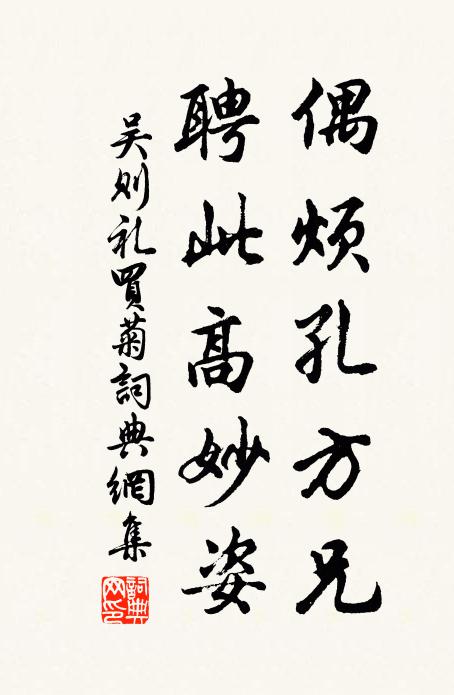 偶烦孔方兄
聘此高妙姿
吴则礼買菊詞典網集
詞典
网印